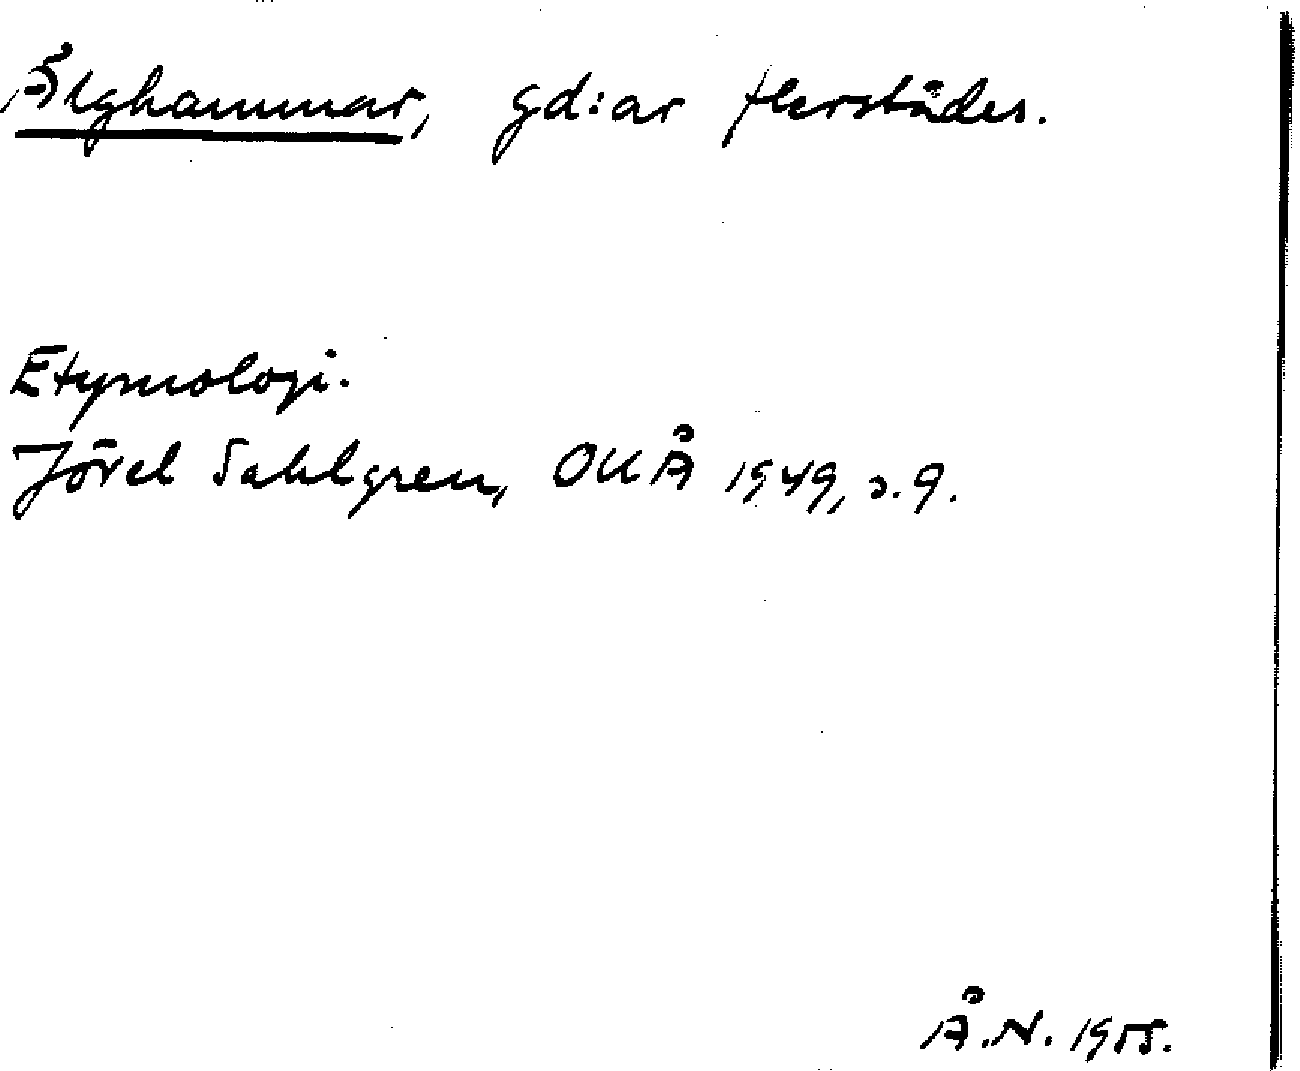 Älghammar, gd:ar flerstädes.
Etymologi.
Jöran Sahlgren, OUÅ 1949, s. 9.
Å.N. 1955.